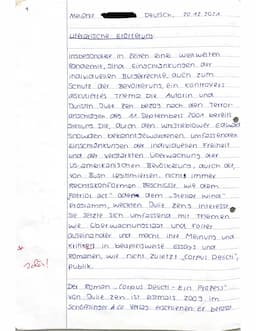 Melona Deutsch, 20.12.2021
Literarische Erörterung
Insbesondere in Zeiten einer weltweiten
Pandemie, sind Einschränkungen der
individuellen Bürgerrechte, auch zum
Schutz der Bevölkerung, ein kontrovers
diskutiertes Thema. Die Autorin und
Juristin Juli Zeh bezog nach den Terror-
anschlägen des 11. September 2001 bereits
Stellung. Die, durch den Whistleblower Edward
Snowden bekanntgewordenen, umfassenden
Einschränkungen der individuellen Freiheit
und der verstärkten Überwachung der
US-amerikanischen Bevölkerung, durch die,
von Bush legitimierten, nicht immer
rechtskonformen Beschlüsse, wie dem
"Patriot act" oder dem "Stellar Wind"
Programm, weckten Julie Zehs Interesse.
Sie setzte sich umfassend mit Themen
wie Überwachungsstaat und Folter
auseinander und macht ihre Meinung und
Kritiken in beispielsweise Essays und
Romanen, wie nicht zuletzt „Corpus Delicti",
publik.
Der Roman „Corpus Delicti - Ein Prozess"
von Julie Zeh ist erstmals 2009 im
Schöffling & Co. Verlag erschienen. Er befasst